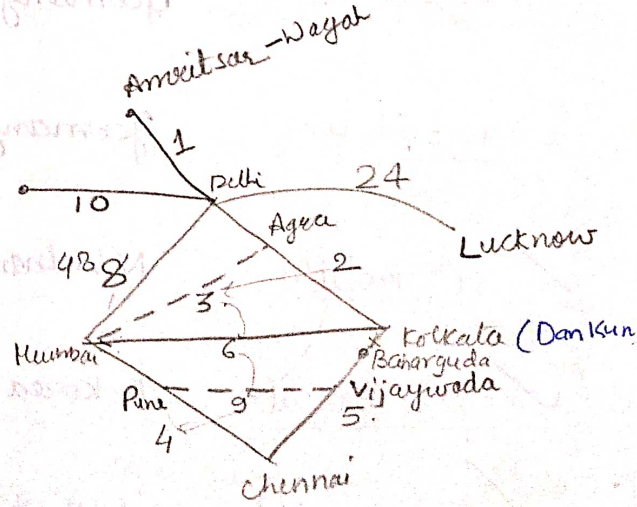 Amritsar - Wagah
1
Delhi
24
10
Agra
Lucknow
48 8
2
3.
Mumbai
6
Kolkata (Dankun
Baharguda
Pune
9
Vijaywada
5.
4
Chennai